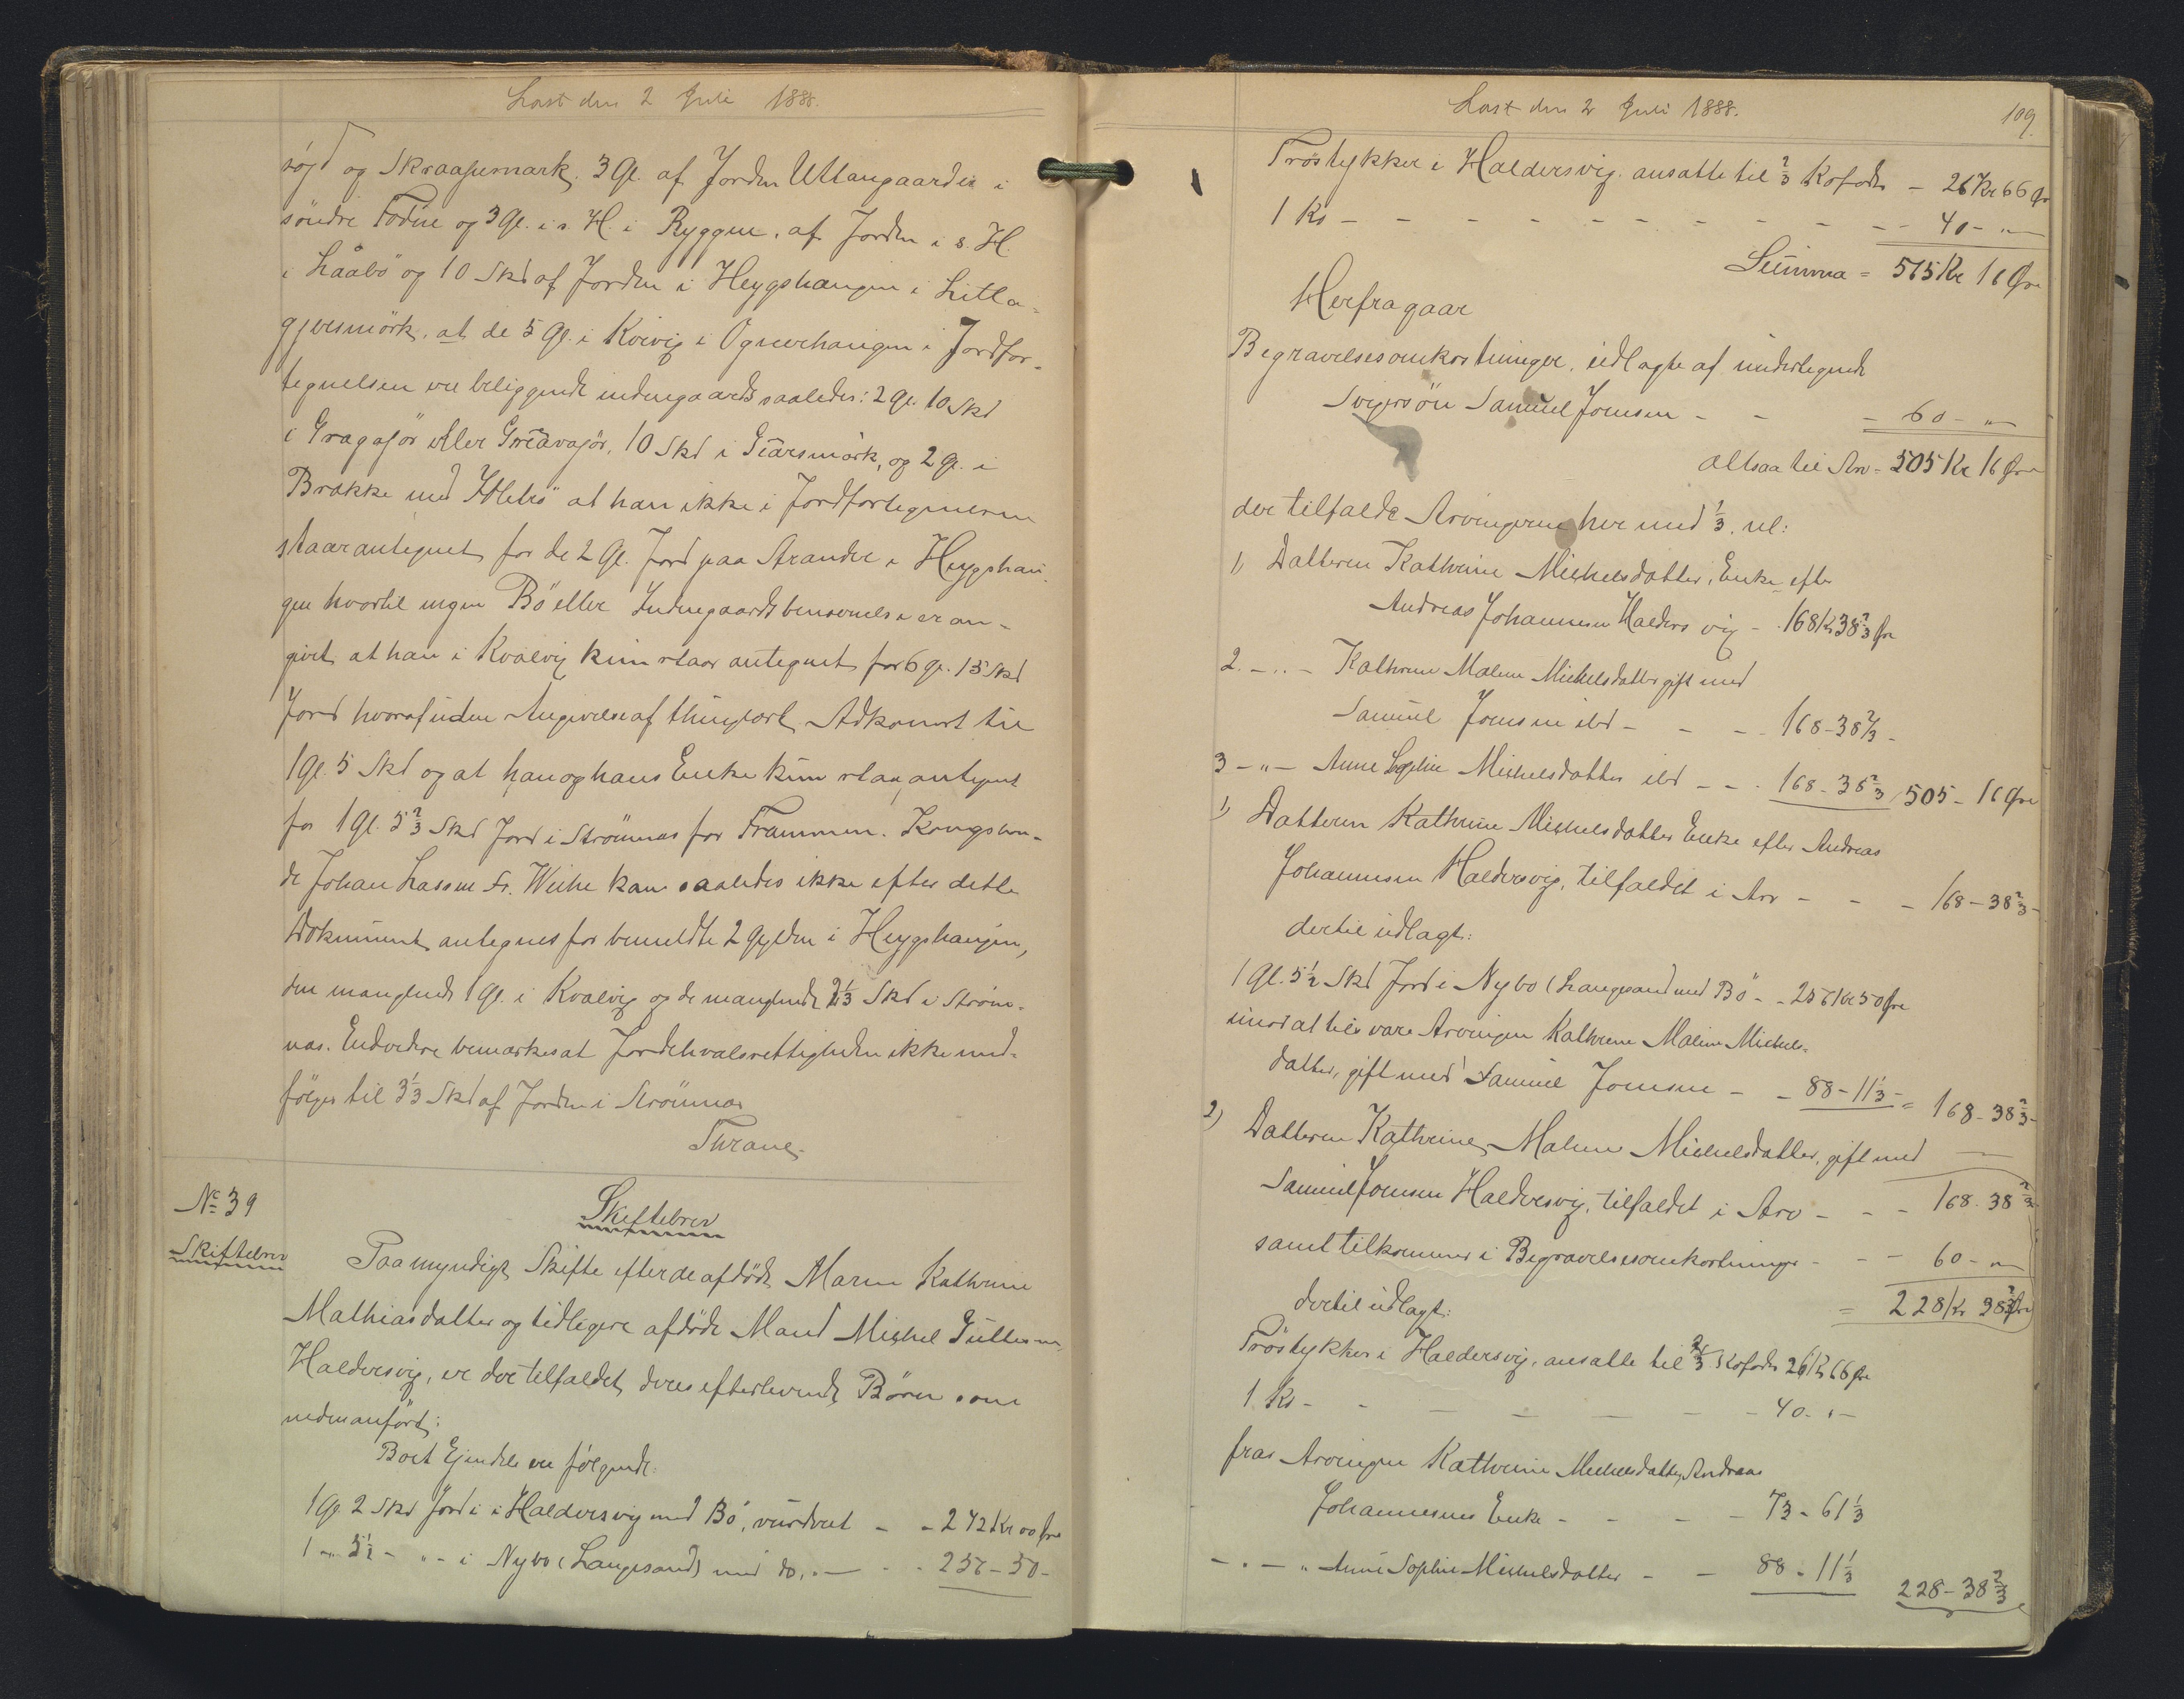 Læst den 2 Juli 1888.
søjd og Skraapumark. 3 Gl. af Jorden Uttangaardis i
söndre Todne og 3 Gl. i s. H. i Ryggen, af Jorden i s. H.
i Lååbö og 10 Skd af Jorden i Heygshaugen i Litla-
gjersmörk, at de 5 Gl. i Kvivig i Ognerhaugen i Jordfor-
tegnelsen ere beliggende indengaards saaledes: 2 Gl. 10 Skd
i Gragajör eller Greavajör, 10 Skd i Gearsmörk, og 2 Gl. i
Brekke med at han ikke i Jordfortegnelsen
staar antegnet for de 2 Gl. Jord paa Strander i Heygshau-
gen hvortil ingen Bö eller Indengaardsbenævnelse er an-
givet at han i Kvalvig kun staar antegnet for 6 Gl. 15 Skd
Jord hvoraf uden Angivelse af thinglæst Adkomst til
1 Gl. 5 Skd og at han og hans Enke kun staar antegnet
for 1 Gl. 5 2/3 Skd Jord i Strömnæs for Frammen. Kongsbon-
de Johan Lassen Fr. Weihe kan saaledes ikke efter dette
Dokument antegnes for bemeldte 2 Gylden i Heygshaugen,
den manglende 1 Gl. i Kvalvig og de manglende 2 1/3 Skd i Ström-
næs. Endvidere bemærkes at Jordehvalsrettigheden ikke med-
følger til 3 1/3 Skd af Jorden i Strömnæs
Thrane
No 39
Skiftebrev
Skiftebrev
Paa myndigt Skifte efter de afdöde Maren Kathrine
Mathiasdatter og tidligere afdöde Mand Michel Guttesen
Haldersvig, er der tilfaldet deres efterlevende Börn som
nedenanfört:
Boets Ejendele ere følgende:
1 Gl. 2 Skd Jord i i Haldersvig med Bö, vurderet - - 242 Kr 00 Øre
1 - " 5 1/2 - " - i Nybo (Langesand) med do. " - - - 256 - 50 -
Læst den 2 Juli 1888.
109.
Fröstykker i Haldersvig. ansatte til 2/3 Kofoder - 26 Kr 66 Ør
1 Ko - - - - - - - - - - 40 - "
Summa = 565 Kr 16 Øre
Herfra gaar
Begravelsesomkostninger, udlagte af undertegnede
Svigersön Samuel Joensen - - - 60 - "
altsaa til Arv - 505 Kr 16 Øre
der tilfalde Arvingerne hver med 1/3. nl:
1) Datteren Kathrine Michelsdatter, Enke efter
Andreas Johannesen Haldersvig - 168 Kr 38 2/3 Øre
2. - " - Kathrine Malene Michelsdatter gift med
Samuel Joensen ibd - - - 168 - 38 2/3 -
3 - " - Anne Sophie Michelsdatter ibd - - 168 - 38 2/3 505 - 16 Øre
1) Datteren Kathrine Michelsdatter Enke efter Andreas
Johannesen Haldersvig, tilfaldet i Arv - - - 168 - 38 2/3 -
dertil udlagt:
1 Gl. 5 1/2 Skd Jord i Nybo (Langesand med Bö - - 256 Kr 50 Øre
imod at tilsvare Arvingen Kathrine Malene Michels-
datter, gift med Samuel Joensen - - 88 - 11 1/3 - = 168 - 38 2/3 -
2) Datteren Kathrine Malene Michelsdatter, gift med
Samuel Joensen Haldersvig, tilfaldet i Arv - - - 168. 38 2/3
samt tilkommer i Begravelsesomkostninger - - - 60 - "
= 228 Kr 38 2/3 Øre
dertil udlagt:
Fröstykker i Haldersvig, ansatte til 2/3 Kofoder 26 Kr 66 Øre
1 Ko - - - - - - - 40. " -
hos Arvingen Kathrine Michelsdatter, Andreas
Johannesens Enke - - - - 73 - 61 1/3
- " - " Anne Sophie Michelsdatter - - 88 - 11 1/3 228 - 38 2/3